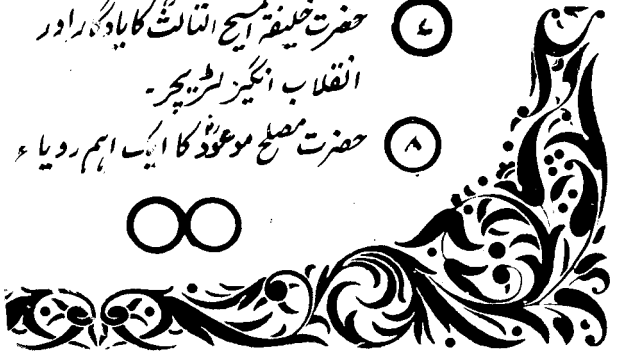 ۷ حضرت خلیفۃ المسیح الثالثؒ کا یادگار اور
انقلاب انگیز لٹریچر۔
۸ حضرت مصلح موعودؓ کا ایک اہم رویاء